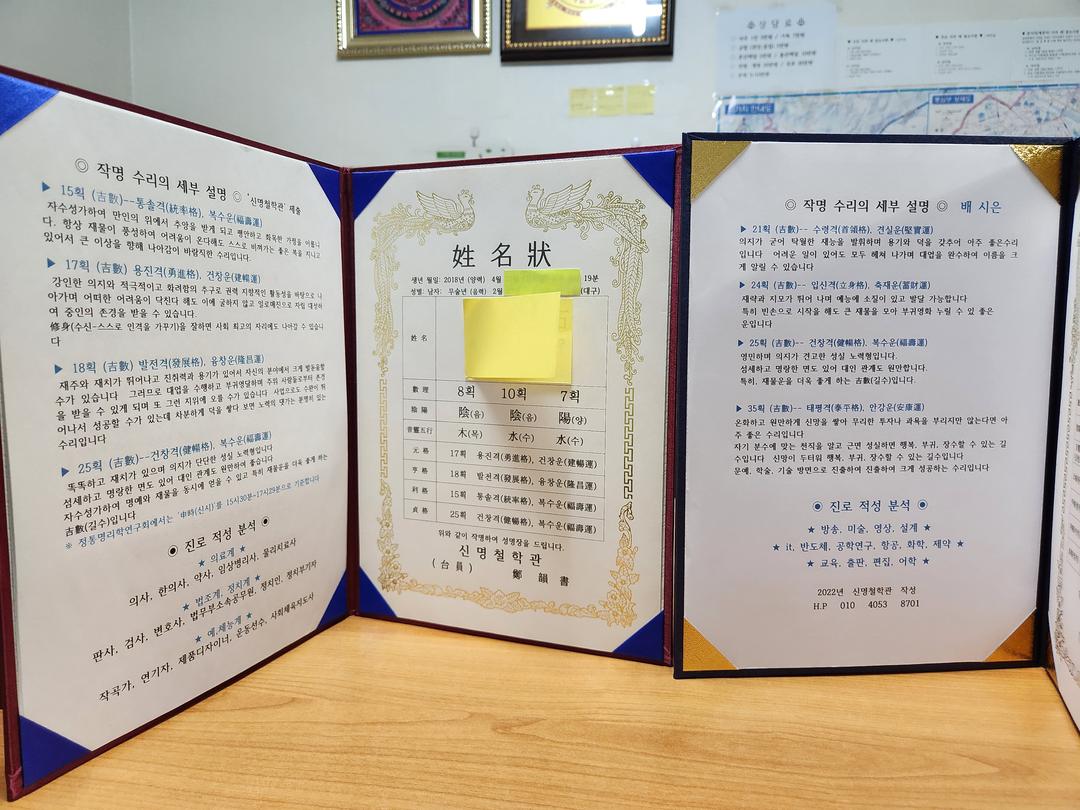 ◎ 작명 수리의 세부 설명 ◎ '신명철학관' 제출
▶ 15획 (吉數)--통솔격(統率格), 복수운(福壽運)
자수성가하여 만인의 위에서 추앙을 받게 되고 평안하고 화목한 가정을 이룹니
다. 항상 재물이 풍성하여 어려움이 온다해도 스스로 비껴가는 좋은 복을 지니고
있어서 큰 이상을 향해 나아감이 바람직한 수리입니다.
▶ 17획 (吉數) 용진격(勇進格), 건창운(建暢運)
강인한 의지와 적극적이고 화려함의 추구로 권력 지향적인 활동성을 바탕으로 나
아가며 어떠한 어려움이 닥친다 해도 이에 굴하지 않고 일로매진으로 자립 대성하
여 중인의 존경을 받을 수 있습니다.
修身(수신-스스로 인격을 가꾸기)을 잘하면 사회 최고의 자리에도 나아갈 수 있습니
다
▶ 18획 (吉數) 발전격(發展格), 융창운(隆昌運)
재주와 재치가 뛰어나고 진취력과 용기가 있어서 자신의 분야에서 크게 발돋움할
수가 있습니다 그러므로 대업을 수행하고 부귀영달하며 주위 사람들로부터 존경
을 받을 수 있게 되며 또 그런 지위에 오를 수가 있습니다 사업으로도 수완이 뛰
어나서 성공할 수가 있는데 차분하게 덕을 쌓다 보면 노력의 댓가는 분명히 있는
수리입니다
▶ 25획 (吉數)--건창격(健暢格), 복수운(福壽運)
똑똑하고 재치가 있으며 의지가 단단한 성실 노력형입니다
섬세하고 명랑한 면도 있어 대인 관계도 원만하여 좋습니다
자수성가하여 명예와 재물을 동시에 얻을 수 있고 특히 재물운을 더욱 좋게 하는
吉數(길수)입니다
※ 정통명리학연구회에서는 '申時(신시)'를 15시30분~17시29분으로 기준합니다
◉ 진로 적성 분석 ◉
★ 의료계 ★
의사, 한의사, 약사, 임상병리사, 물리치료사
★ 법조계, 정치계 ★
판사, 검사, 변호사, 법무부소속공무원, 정치인, 정치부기자
★ 예,체능계 ★
작곡가, 연기자, 제품디자이너, 운동선수, 사회체육지도사
姓名狀
생년 월일: 2018년 (양력) 4월 19분
성별: 남자: 무술년 (음력) 2월 (대구)
姓名
數理 8획 10획 7획
陰陽 陰(음) 陰(음) 陽(양)
音靈五行 木(목) 水(수) 水(수)
元格 17획 용진격(勇進格), 건창운(建暢運)
亨格 18획 발전격(發展格), 융창운(隆昌運)
利格 15획 통솔격(統率格), 복수운(福壽運)
貞格 25획 건창격(健暢格), 복수운(福壽運)
위와 같이 작명하여 성명장을 드립니다.
신명철학관
(台員) 鄭韻書
◎ 작명 수리의 세부 설명 ◎ 배 시은
▶ 21획 (吉數)-- 수령격(首領格), 견실운(堅實運)
의지가 굳어 탁월한 재능을 발휘하며 용기와 덕을 갖추어 아주 좋은수리
입니다 어려운 일이 있어도 모두 헤쳐 나가며 대업을 완수하여 이름을 크
게 알릴 수 있습니다
▶ 24획 (吉數)-- 입신격(立身格), 축재운(蓄財運)
재략과 지모가 뛰어 나며 예능에 소질이 있고 발달 가능합니다
특히 빈손으로 시작을 해도 큰 재물을 모아 부귀영화 누릴 수 있 좋은
운입니다
▶ 25획 (吉數)-- 건창격(健暢格), 복수운(福壽運)
영민하며 의지가 견고한 성실 노력형입니다.
섬세하고 명랑한 면도 있어 대인 관계도 원만합니다.
특히, 재물운을 더욱 좋게 하는 吉數(길수)입니다.
▶ 35획 (吉數)-- 태평격(泰平格), 안강운(安康運)
온화하고 원만하게 신망을 쌓아 무리한 투자나 과욕을 부리지만 않는다면 아
주 좋은 수리입니다
자기 분수에 맞는 천직을 알고 근면 성실하면 행복, 부귀, 장수할 수 있는 길
수입니다 신망이 두터워 행복, 부귀, 장수할 수 있는 길수입니다
문예, 학술, 기술 방면으로 진출하여 진출하여 크게 성공하는 수리입니다
◉ 진로 적성 분석 ◉
★ 방송, 미술, 영상, 설계 ★
★ it, 반도체, 공학연구, 항공, 화학, 제약 ★
★ 교육, 출판, 편집, 어학 ★
2022년 신명철학관 작성
H.P 010 4053 8701